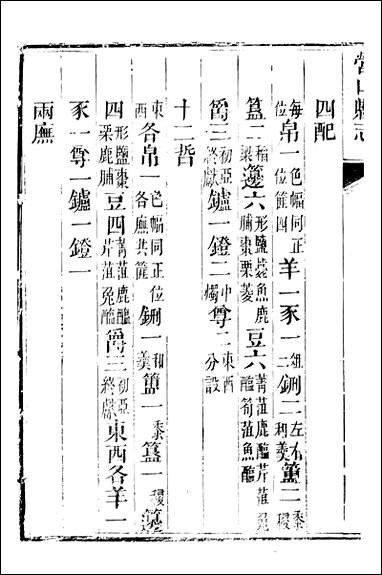 營山縣志
四配
每位帛一色幅同正位篚四羊一豕一俎二鉶二左右和羹簠二黍稷
簋二稻粱籩六形鹽薧魚鹿脯棗栗菱豆六菁菹鹿醢芹菹兔醢筍菹魚醢
爵三初亞終獻鑪一鐙二中燭尊二東西分設
十二哲
東西各帛一色幅同正位各廡共篚一鉶一和羹簠一黍簋一稷籩
四形鹽棗栗鹿脯豆四菁菹鹿醢芹菹兔醢爵三初亞終獻東西各羊一
豕一尊一鑪一鐙一
兩廡